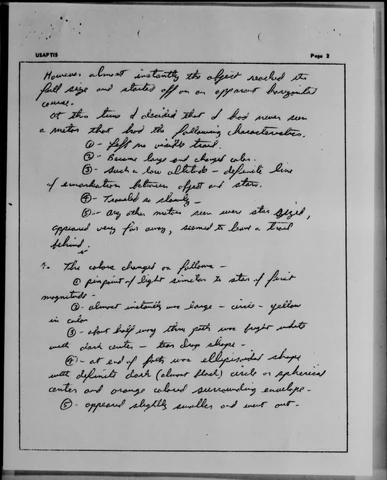 USAPTIS Page 2
However almost instantly the object reached its
full size and started off on an apparent horizontal
course.
At this time I decided that I had never seen
a meteor that had the following characteristics.
① - Left no visible trail.
② - Became large and changed color.
③ - Such a low altitude - definite line
of demarkation between object and stars.
④ - Traveled so slowly -
⑤ - Any other meteors seen were star sized,
appeared very far away, seemed to leave a trail
behind.
7. The colors changed as follows -
① pinpoint of light similar to star of faint
magnitude -
② - almost instantly was large - circle - yellow
in color
③ - about half way thru path was bright white
with dark center - tear drop shape -
④ - at end of path was ellipsoidal shape
with definite dark (almost black) circle or spherical
center and orange colored surrounding envelope -
⑤ - appeared slightly smaller and went out -